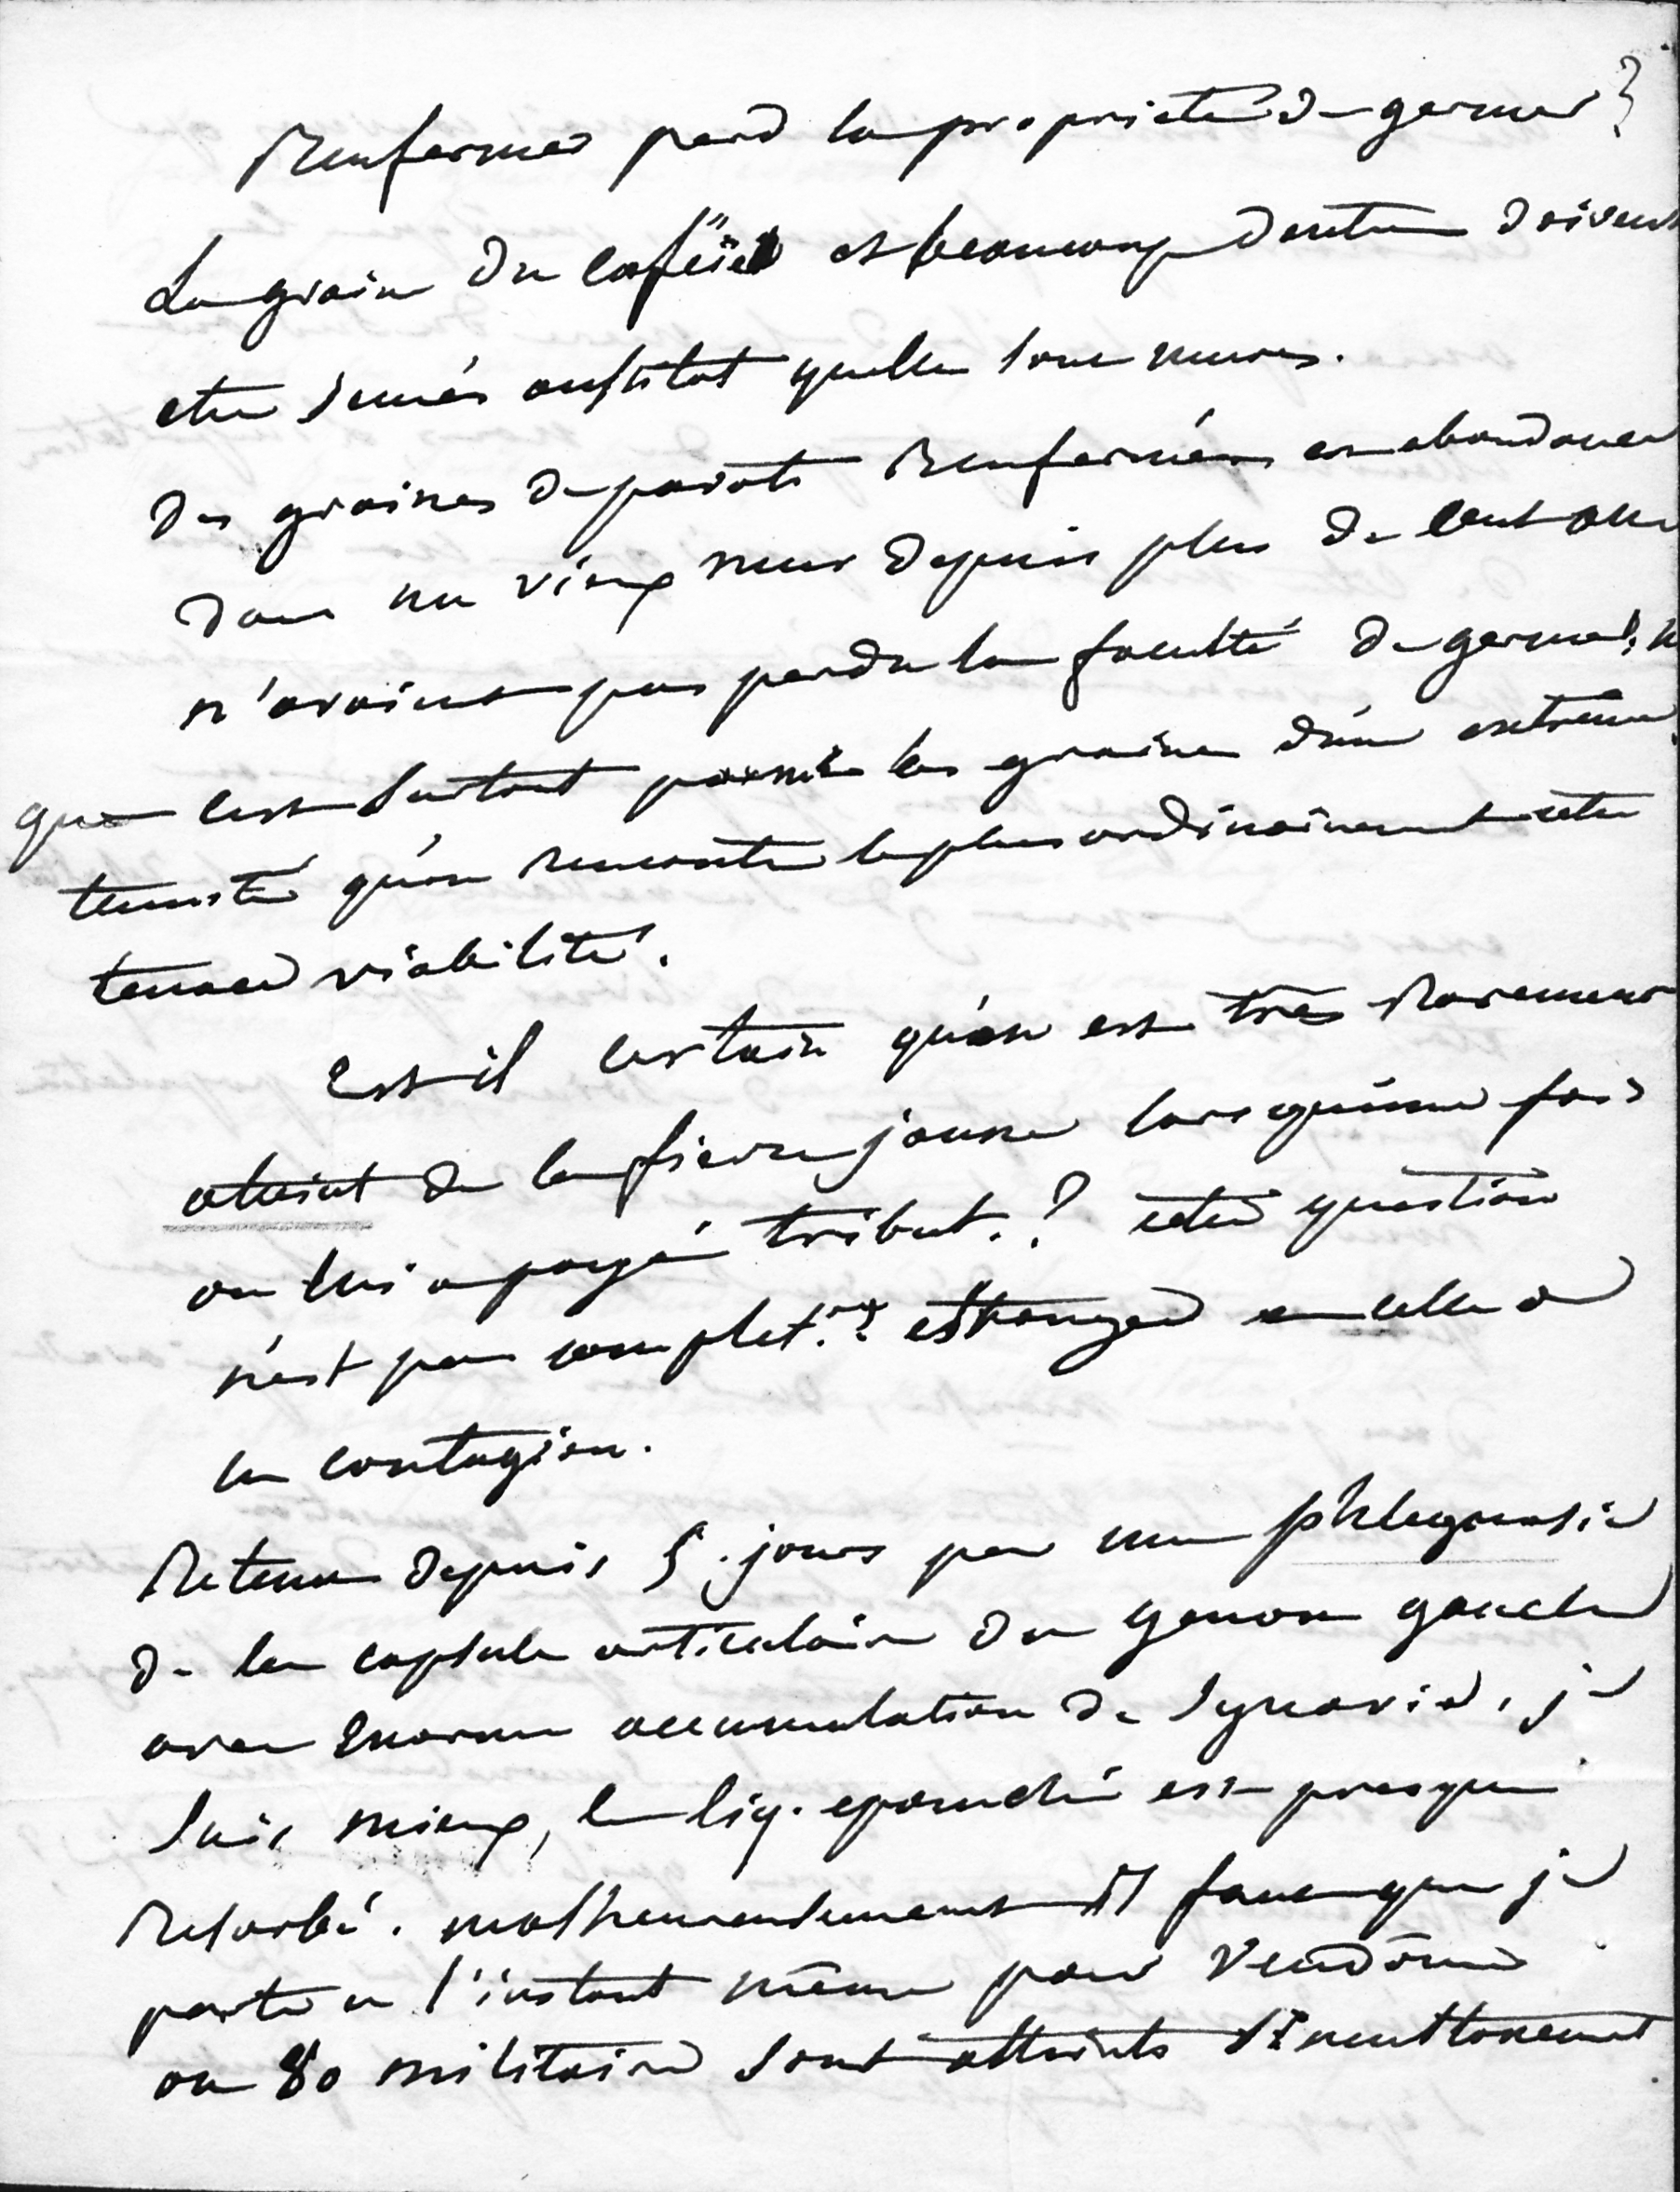 Renfermés perd la proprieté de germer?
La graine du caféier et beaucoup dautres doivent
etre semés aussitot quelles sont mures.
des graines de pavots Renfermées et abandonnées
dans un vieux mur depuis plus de cent ans
n'avaient pas perdu la faculté de germer,
que cest surtout parmi les graines d'une extreme
tenuité qu'on rencontre le plus ordinairement cette
tenace viabilité.
Est il certain qu'on est très Rarement
atteint de la fievre jaune lorsqu'une fois
on lui a payé tribut.? cette question
n'est pas complet. etrangere a celle de
la contagion.
Retenu depuis 5. jours par une phlegmasie
de la capsule articulaire du genou gauche
avec Enorme accumulation de Synovie, je
suis mieux, le liq. epanché est presque
Resorbé. malheureusement il faut que je
parte a l'instant même pour Vendôme
ou 80 militaires sont atteints simultanement